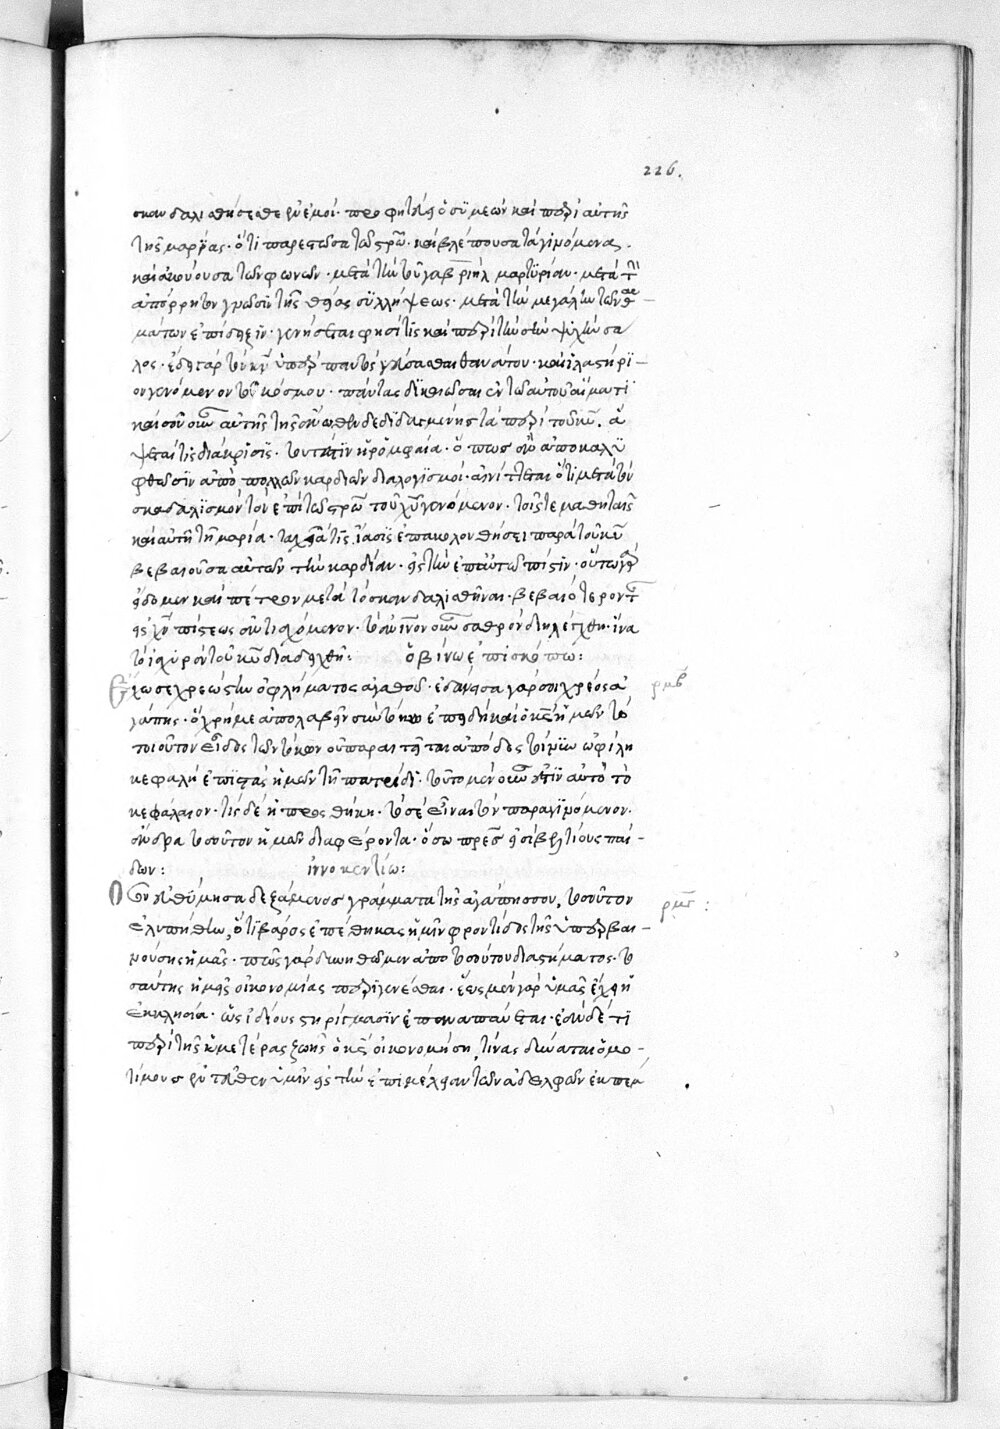 226.
σκανδαλισθήσεσθε ἐν ἐμοί· προφητεύει ὁ συμεὼν καὶ περὶ αὐτῆς
τῆς μαρίας· ὅτι παρεστῶσα τῷ στρῷ· καὶ βλέπουσα τὰ γινόμενα·
καὶ ἀκούουσα τῶν φωνῶν· μετὰ τὴν τοῦ γαβριὴλ μαρτυρίαν· μετὰ τὴν
ἀπόρρητον γνῶσιν τῆς θείας συλλήψεως· μετὰ τὴν μεγάλην τῶν θαυ–
μάτων ἐπίδειξιν· γενήσεται φησί τις καὶ περὶ τὴν σὴν ψυχὴν σά–
λος· ἔδει γὰρ τὸν κν̄ ὑπὲρ παντὸς γεύσασθαι θανάτου· καὶ ἱλαστήρι–
ον γενόμενον τοῦ κόσμου· πάντας δικαιῶσαι ἐν τῷ αὐτοῦ αἵματι
καὶ σοῦ οὖν αὐτῆς τῆς ἄνωθεν δεδιδαγμένης τὰ περὶ τοῦ κῡ· ἅ–
ψεταί τις διάκρισις· τοῦτέστιν ἡ ῥομφαία· ὅπως ἂν ἀποκαλυ
φθῶσιν ἀπὸ πολλῶν καρδιῶν διαλογισμοί· αἰνίττεται ὅτι μετὰ τὸν
σκανδαλισμὸν τὸν ἐπὶ τῷ στρῷ τοῦ χῡ γενόμενον· τοῖς τε μαθηταῖς
καὶ αὐτῇ τῇ μαρίᾳ· ταχεῖά τις ἴασις ἐπακολουθήσει παρὰ τοῦ κῡ
βεβαιοῦσα αὐτῶν τὴν καρδίαν· εἰς τὴν ἐπ αὐτῷ πίστιν· οὕτω γὰρ
εἴδομεν καὶ πέτρον μετὰ τὸ σκανδαλισθῆναι· βεβαιότερον τῆς
εἰς χν̄ πίστεως ἀντισχόμενον· τὸ ἀνινον οὖν σαθρὸν διηλέγχθη· ἵνα
τὸ ἰσχυρὸν τοῦ κῡ διαδειχθῇ: ὀβίνῳ ἐπισκόπῳ:
Ἔχω σε χρεώστην ὀφλήματος ἀγαθοῦ· ἐδάνεισα γάρ σοι χρέος ἀ ρμβ
γάπης· ὃ χρή με ἀπολαβεῖν σὺν τόκῳ ἐπειδὴ καὶ ὁ κς̄ ἡμῶν τὸ
τοιοῦτον εἶδος τῶν τόκων οὐ παραιτεῖται ἀπόδος τοίνυν ὦ φίλη
κεφαλὴ ἐπιστὰς ἡμῶν τῇ πατρίδι· τοῦτο μὲν οὖν ἐστιν αὐτὸ τὸ
κεφάλαιον· τίς δὲ ἡ προσθήκη· τὸ σὲ εἶναι τὸν παραγινόμενον·
ἄνδρα τοσοῦτον ἡμῶν διαφέροντα· ὅσῳ πρες εἰσὶ βελτίους παί–
δων: ἰννοκεντίῳ:
Ὃν εὐθύμησα δεξάμενος γράμματα τῆς ἀγάπης σου, τοσοῦτον ρμγ:
ἐλυπήθην, ὅτι βάρος ἐπέθηκας ἡμῖν φροντίδος τῆς ὑπερβαι–
νούσης ἡμᾶς· πῶς γὰρ δυνηθῶμεν ἀπὸ τοσούτου διαστήματος· το
σαύτης ἡμεῖς οἰκονομίας περιγενέσθαι· ἕως μὲν γὰρ ὑμᾶς ἔχει ἡ
ἐκκλησία· ὡς ἰδίοις στηρίγμασιν ἐπαναπαύεται· ἐὰν δέ τι
περὶ τῆς ἡμετέρας ζωῆς ὁ κς̄ οἰκονομήσῃ, τίνας δύναται ὁμο–
τίμους ἐντεῦθεν ὑμῖν εἰς τὴν ἐπιμέλειαν τῶν ἀδελφῶν ἐκπεμ